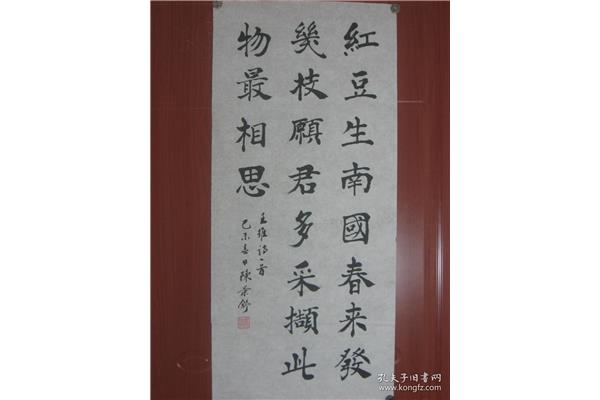 紅豆生南國春来發
幾枝願君多采擷此
物最相思
王維詩一首
己未春日陳景舒
孔夫子旧书网
www.kongfz.com